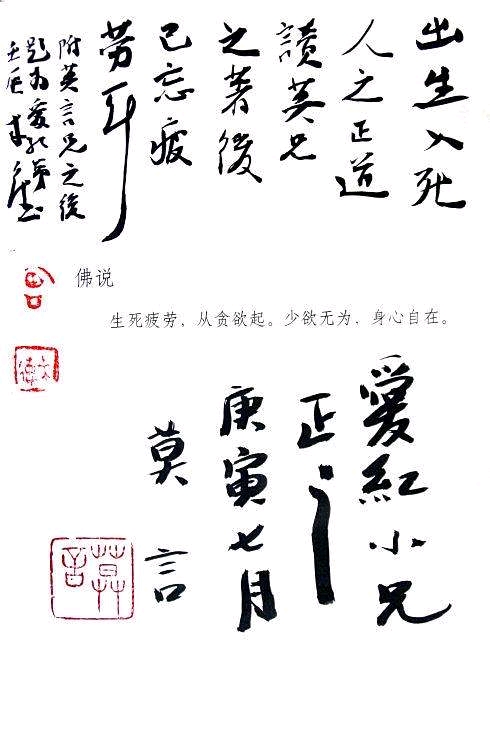 出生入死
人之正道
读莫兄
之著後
已忘疲
劳耳
附莫言兄之後
题为爱红弟
壬辰
佛说
生死疲劳，从贪欲起。少欲无为，身心自在。
爱紅小兄
正之
庚寅七月
莫言
莫言